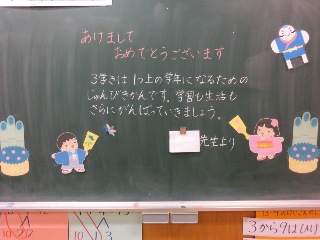 あけまして
おめでとうございます
3学きは1つ上の学年になるための
じゅんびきかんです。学習も生活も
さらにがんばっていきましょう。
先生より
3から9はひけ